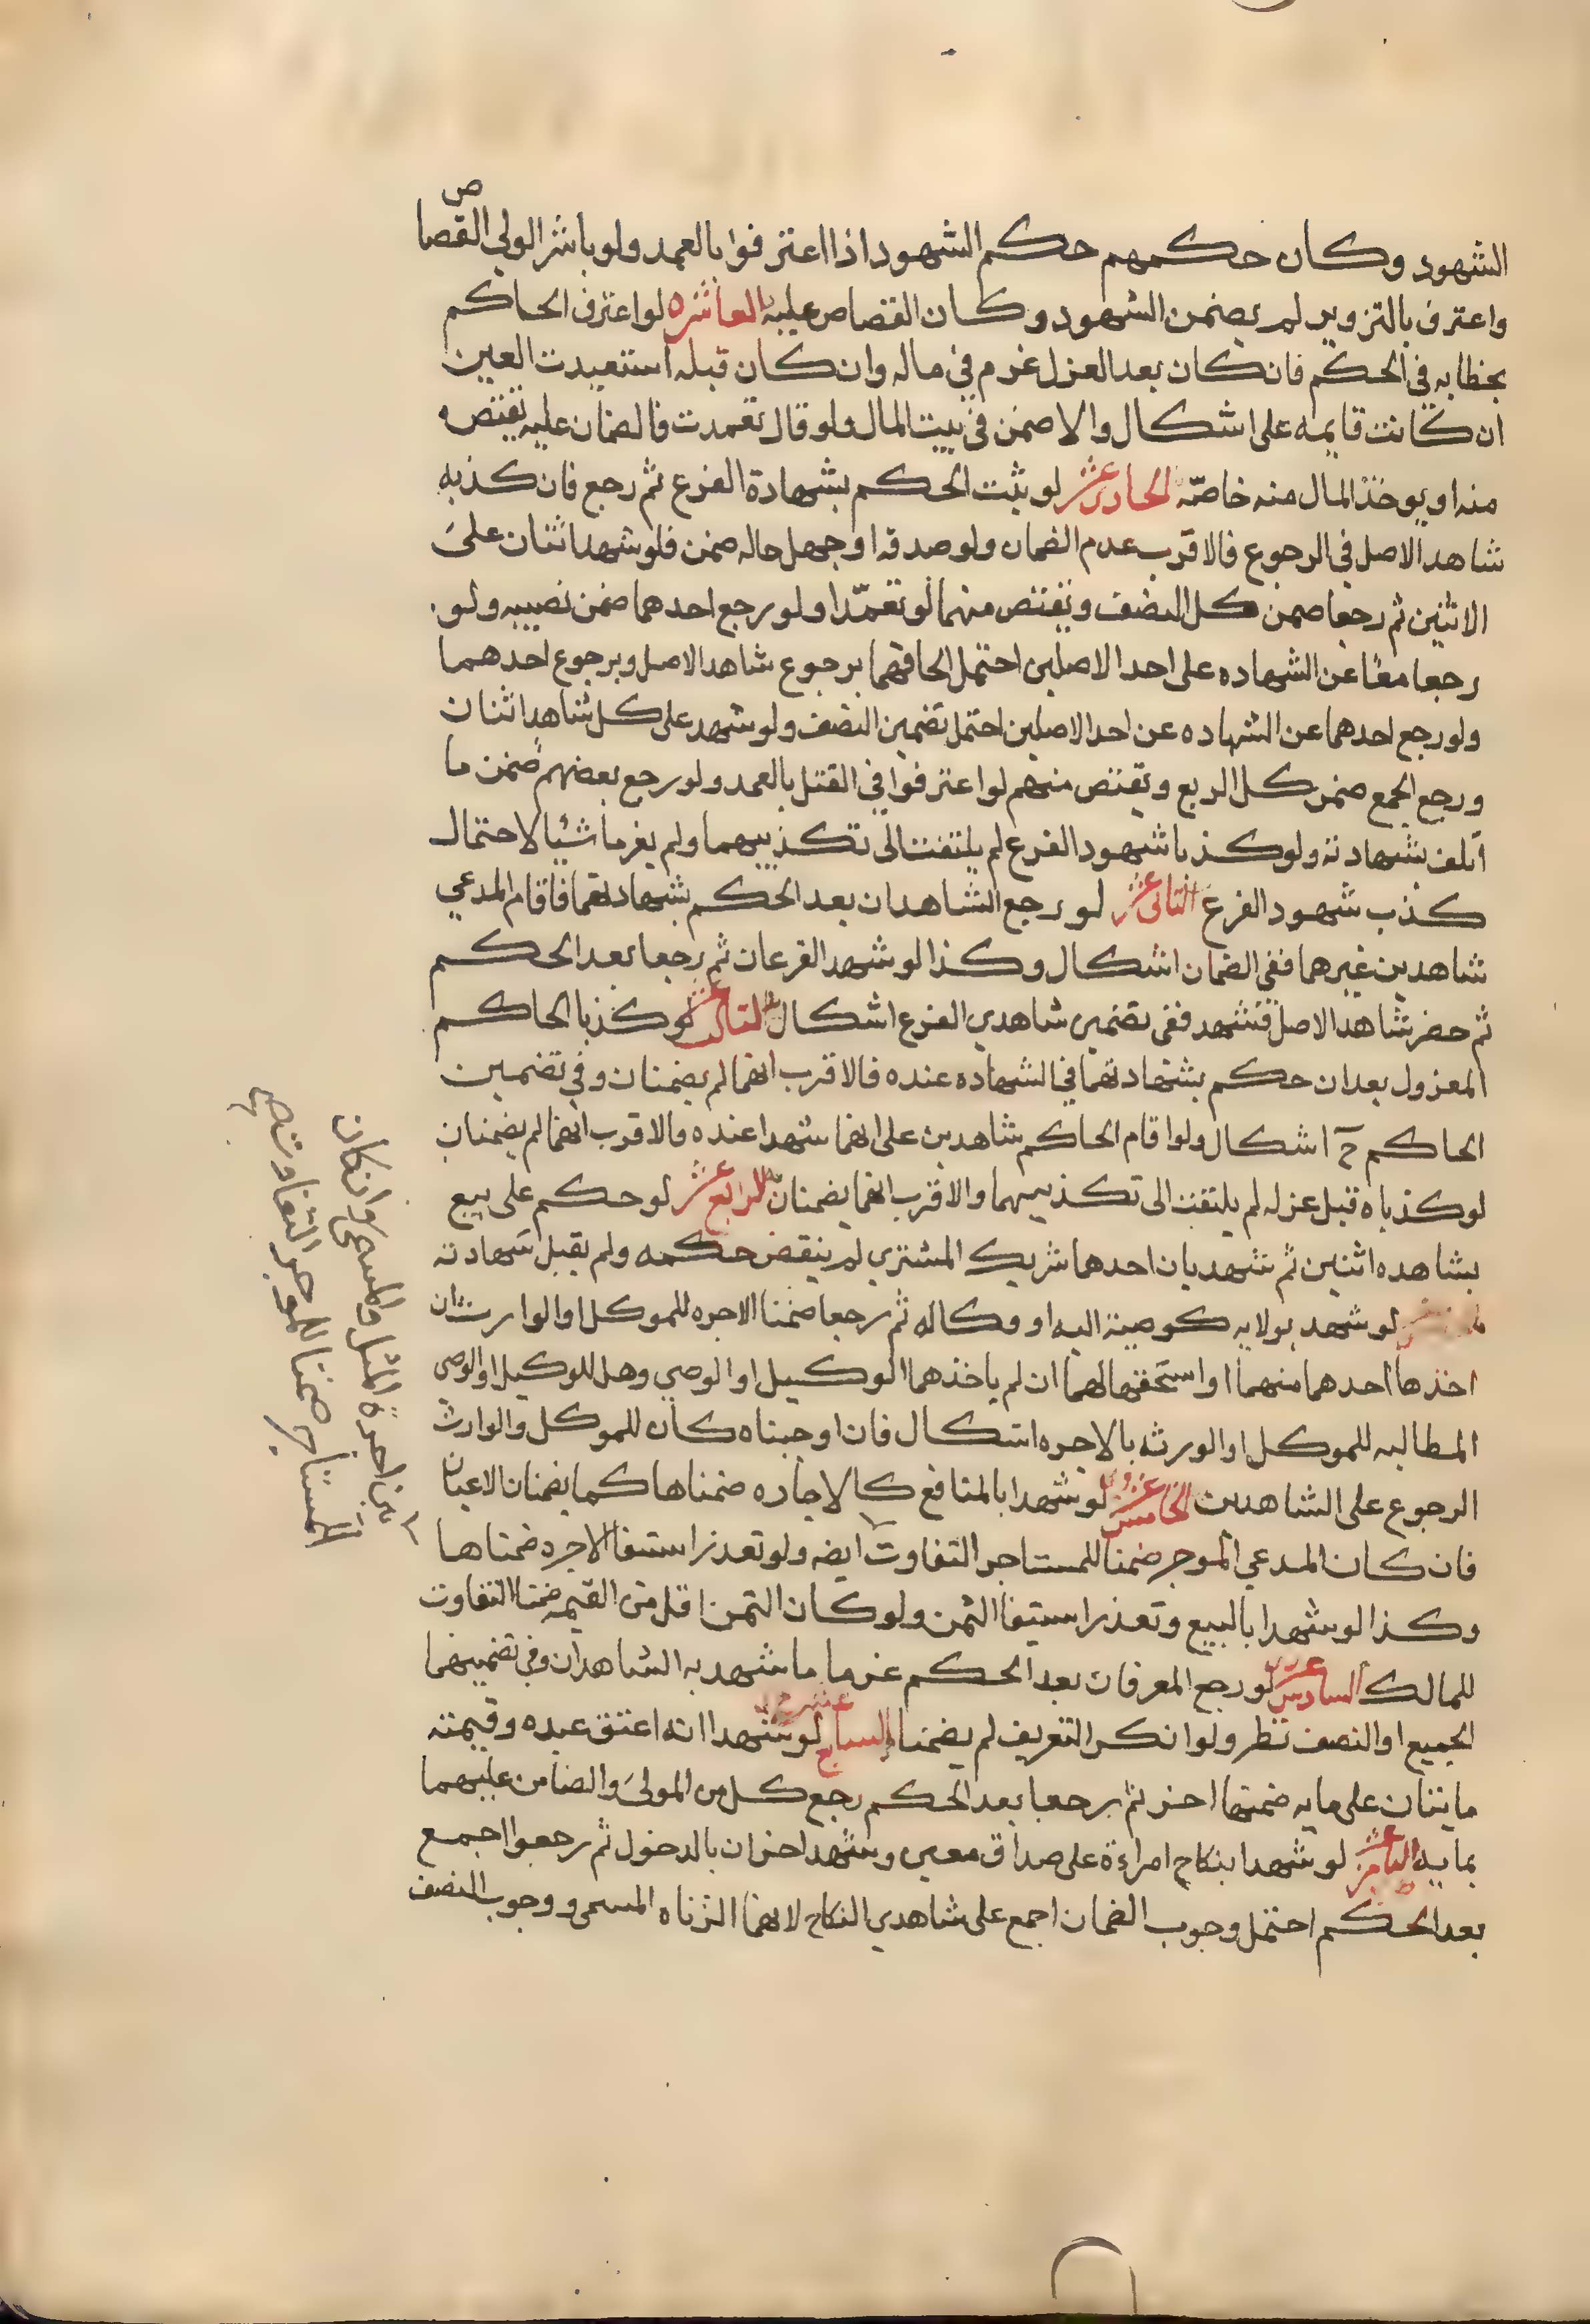 الشهود وكان حكمهم حكم الشهود اذا اعترفوا بالعمد ولو باشر الولي القصاص
واعترف بالتزوير لم يضمن الشهود وكان القصاص عليه العاشره لو اعترف الحاكم
بخطايه في الحكم فان كان بعد العزل غرم في ماله وان كان قبله استعيدت العين
ان كانت قايمه على اشكال والا ضمن في بيت المال ولو قال تعمدت فالضمان عليه يقتص
منه او يوخذ المال منه خاصّة الحادى عشر لو ثبت الحكم بشهادة الفرع ثم رجع فان كذبه
شاهد الاصل في الرجوع فالاقرب عدم الضمان ولو صدقه او جهل حاله ضمن فلو شهد اثنان على
الاثنين ثم رجعا ضمن كل النصف ويقتص منهما لو تعمّدا ولو رجع احدهما ضمن نصيبه ولو
رجعا معا عن الشهاده على احد الاصلين احتمل الحاقهما برجوع شاهد الاصل وبرجوع احدهما
ولو رجع احدهما عن الشهاده عن احد الاصلين احتمل تضمين النصف ولو شهد على كل شاهد اثنان
ورجع الجمع ضمن كل الربع ويقتص منهم لو اعترفوا في القتل بالعمد ولو رجع بعضهم ضمن ما
اتلف بشهادته ولو كذبا شهود الفرع لم يلتفت الى تكذيبهما ولم يغرما شيئا لاحتمال
كذب شهود الفرع الثانى عشر لو رجع الشاهدان بعد الحكم بشهادتهما فاقام المدعي
شاهدين غيرهما ففي الضمان اشكال وكذا لو شهد الفرعان ثم رجعا بعد الحكم
ثم حضر شاهد الاصل فشهد ففي تضمين شاهدي الفرع اشكال الثالث عشر لو كذبا الحاكم
المعزول بعد ان حكم بشهادتهما في الشهاده عنده فالاقرب انهما لم يضمنان وفي تضمين
الحاكم ح اشكال ولو اقام الحاكم شاهدين على انهما شهدا عنده فالاقرب انهما لم يضمنان
لو كذباه قبل عزله لم يلتفت الى تكذيبهما والاقرب انهما يضمنان الرابع عشر لو حكم على بيع
بشاهده اثنين ثم شهد بان احدهما شريك المشتري لم ينقض حكمه ولم يقبل شهادته
لو شهد بولايه كوصية اليه او وكاله ثم رجعا ضمنا الاجره للموكل او الوارث ان
اخذها احدهما منهما او استحقها لهما ان لم ياخذهما الوكيل او الوصي وهل للوكيل او الوصي
المطالبه للموكل او الورثه بالاجره اشكال فان اوجبناه كان للموكل والوارث
الرجوع على الشاهدين الخامس عشر لو شهدا بالمنافع كالاجاره ضمناها كما يضمنان الاعيان
فان كان المدعي الموجر ضمنا للمستاجر التفاوت ايضه ولو تعذر استيفا الاجره ضمناها
وكذا لو شهدا بالبيع وتعذر استيفا الثمن ولو كان الثمن اقل من القيمه ضمنا التفاوت
للمالك السادس عشر لو رجع المعرفان بعد الحكم غرما ما شهد به الشاهدان وفي تضمينهما
الجميع او النصف نظر ولو انكر التعريف لم يضمنا السابع عشر لو شهدا انه اعتق عبده وقيمته
مايتان على مايه ضمنها اخر ثم رجعا بعد الحكم رجع كل من المولى والضامن عليهما
بمايه الثامن عشر لو شهدا بنكاح امراءة على صداق معين وشهد اخران بالدخول ثم رجعوا اجمع
بعد الحكم احتمل وجوب الضمان اجمع على شاهدي النكاح لانهما الزناه المسمى ووجوب النصف
بين اجرة المثل والمسمى وان كان
المستاجر ضمنا للموجر التفاوت صح